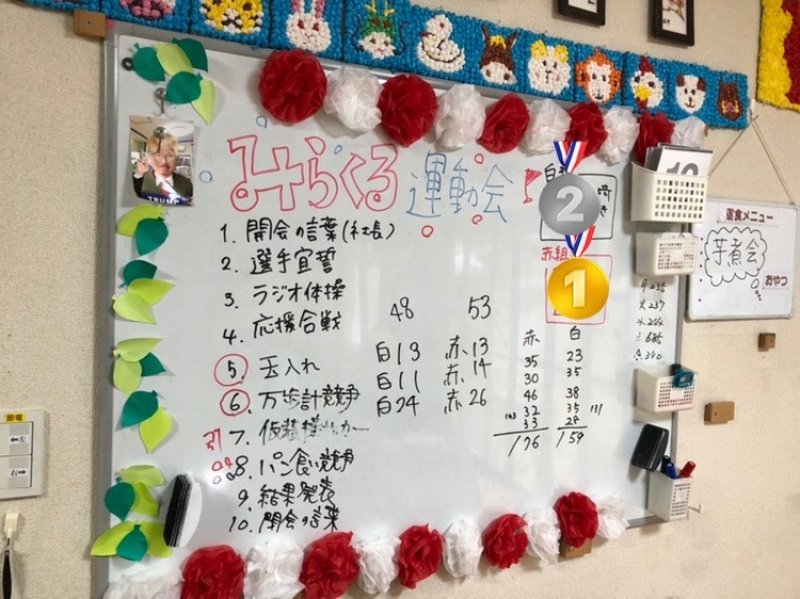 みらくる 運動会
1. 開会の言葉(社長)
2. 選手宣誓
3. ラジオ体操
4. 応援合戦
48 53
5. 玉入れ 白13 赤、13
白11 赤、14
6. 万歩計競争 白24 赤26
7. 仮装
8. パン食い競争
9. 結果発表
10. 閉会の言葉
赤 白
35 23
30 35
46 38
32 35
33 28
176 159
TRUMP
2
赤組
1
昼食メニュー
芋煮会
おやつ
節電
←左
右→